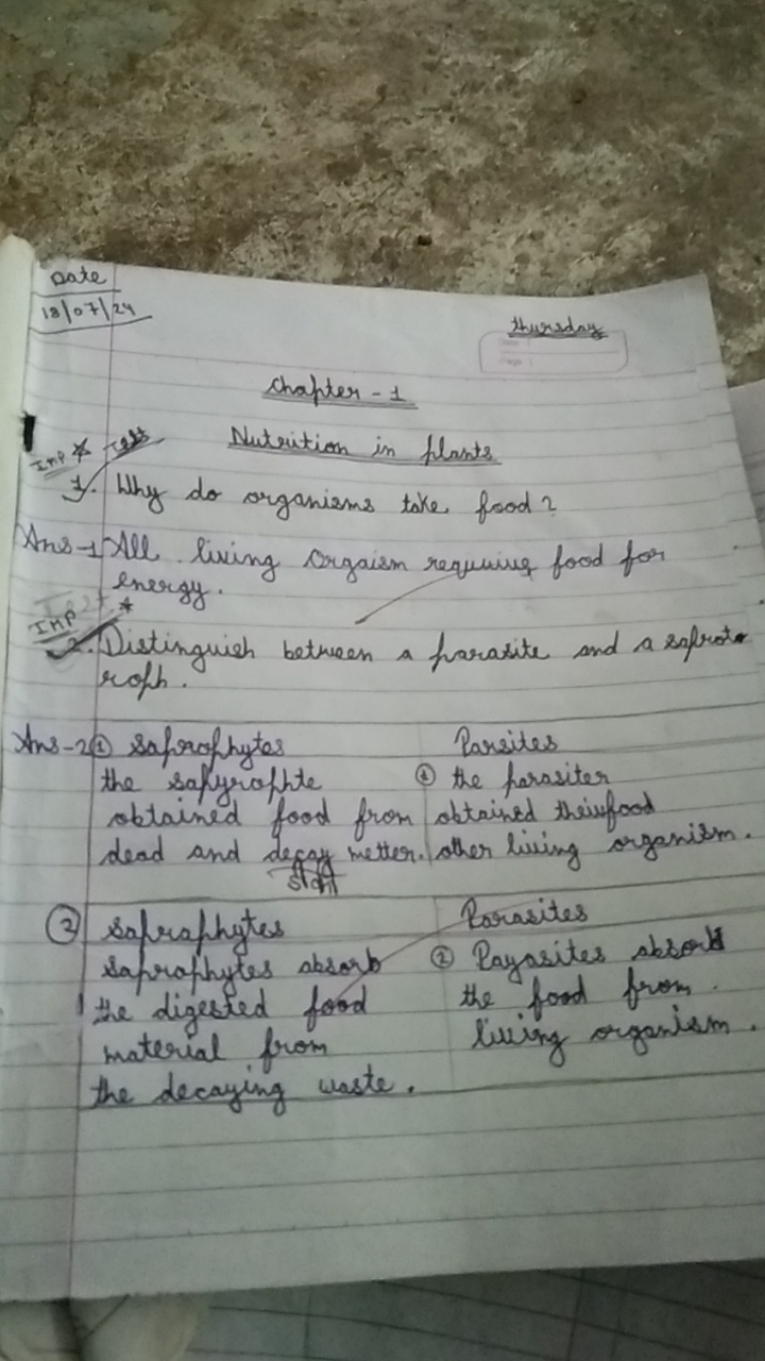 Date
18/07/24
thursday
Date :
Page :
Chapter - 1
Nutrition in plants
Imp ☆ Test
1. Why do organisms take food?
Ans-1 All living Orgaism requiring food for
energy.
Imp *
2. Distinguish between a parasite and a saprot
roph.
Ans-2 ① Saprophytes Parsites
the sapyrophte ① the parasiter
obtained food from obtained their food
dead and decay metter. other living organism.
② Sapraphytes Parasites
Sapraphytes absorb ② Payasites absorb
the digested food the food from
material from living organism.
the decaying waste.